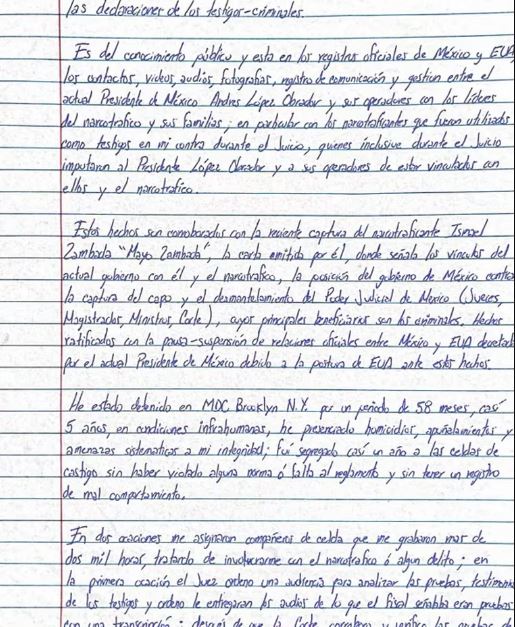 las declaraciones de los testigos-criminales.
Es del conocimiento público y esta en los registros oficiales de México y EUA
los contactos, videos, audios, fotografías, registro de comunicación y gestion entre el
actual Presidente de México Andres López Obrador y sus operadores con los líderes
del narcotrafico y sus familias; en particular con los narcotraficantes que fueron utilizados
como testigos en mi contra durante el Juicio, quienes inclusive durante el Juicio
imputaron al Presidente López Obrador y a sus operadores de estar vinculados con
ellos y el narcotrafico.
Estos hechos son corroborados con la reciente captura del narcotraficante Ismael
Zambada "Mayo Zambada", la carta emitida por él, donde señala los vinculos del
actual gobierno con él y el narcotrafico, la posición del gobierno de México contra
la captura del capo y el desmantelamiento del Poder Judicial de Mexico (Jueces,
Magistrados, Ministros, Corte), cuyos principales beneficiarios son los criminales. Hechos
ratificados con la pausa-suspensión de relaciones oficiales entre México y EUA decretada
por el actual Presidente de México debido a la postura de EUA ante estos hechos.
He estado detenido en MDC Brooklyn N.Y. por un periodo de 58 meses, casi
5 años, en condiciones infrahumanas, he presenciado homicidios, apuñalamientos y
amenazas sistematicas a mi integridad; fuí segregado casí un año a las celdas de
castigo sin haber violado alguna norma ó falta al reglamento y sin tener un registro
de mal comportamiento.
En dos ocaciones me asignaron compañeros de celda que me grabaron mas de
dos mil horas, tratando de involucrarme con el narcotrafico ó algun delito; en
la primera ocación el Juez ordeno una audiencia para analizar las pruebas, testimonios
de los testigos y ordeno le entregaran los audios de lo que el fiscal señalaba eran pruebas
con una transcripción; después de que la Corte